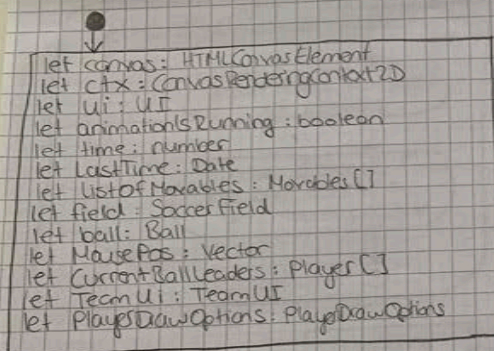 let canvas: HTMLCanvasElement
let ctx: CanvasRenderingContext2D
let ui: UI
let animationIsRunning: boolean
let time: number
let LastTime: Date
let listOfMovables: Movables[]
let field: SoccerField
let ball: Ball
let MousePos: Vector
let CurrentBallLeaders: Player[]
let TeamUi: TeamUI
let PlayerDrawOptions: PlayerDrawOptions